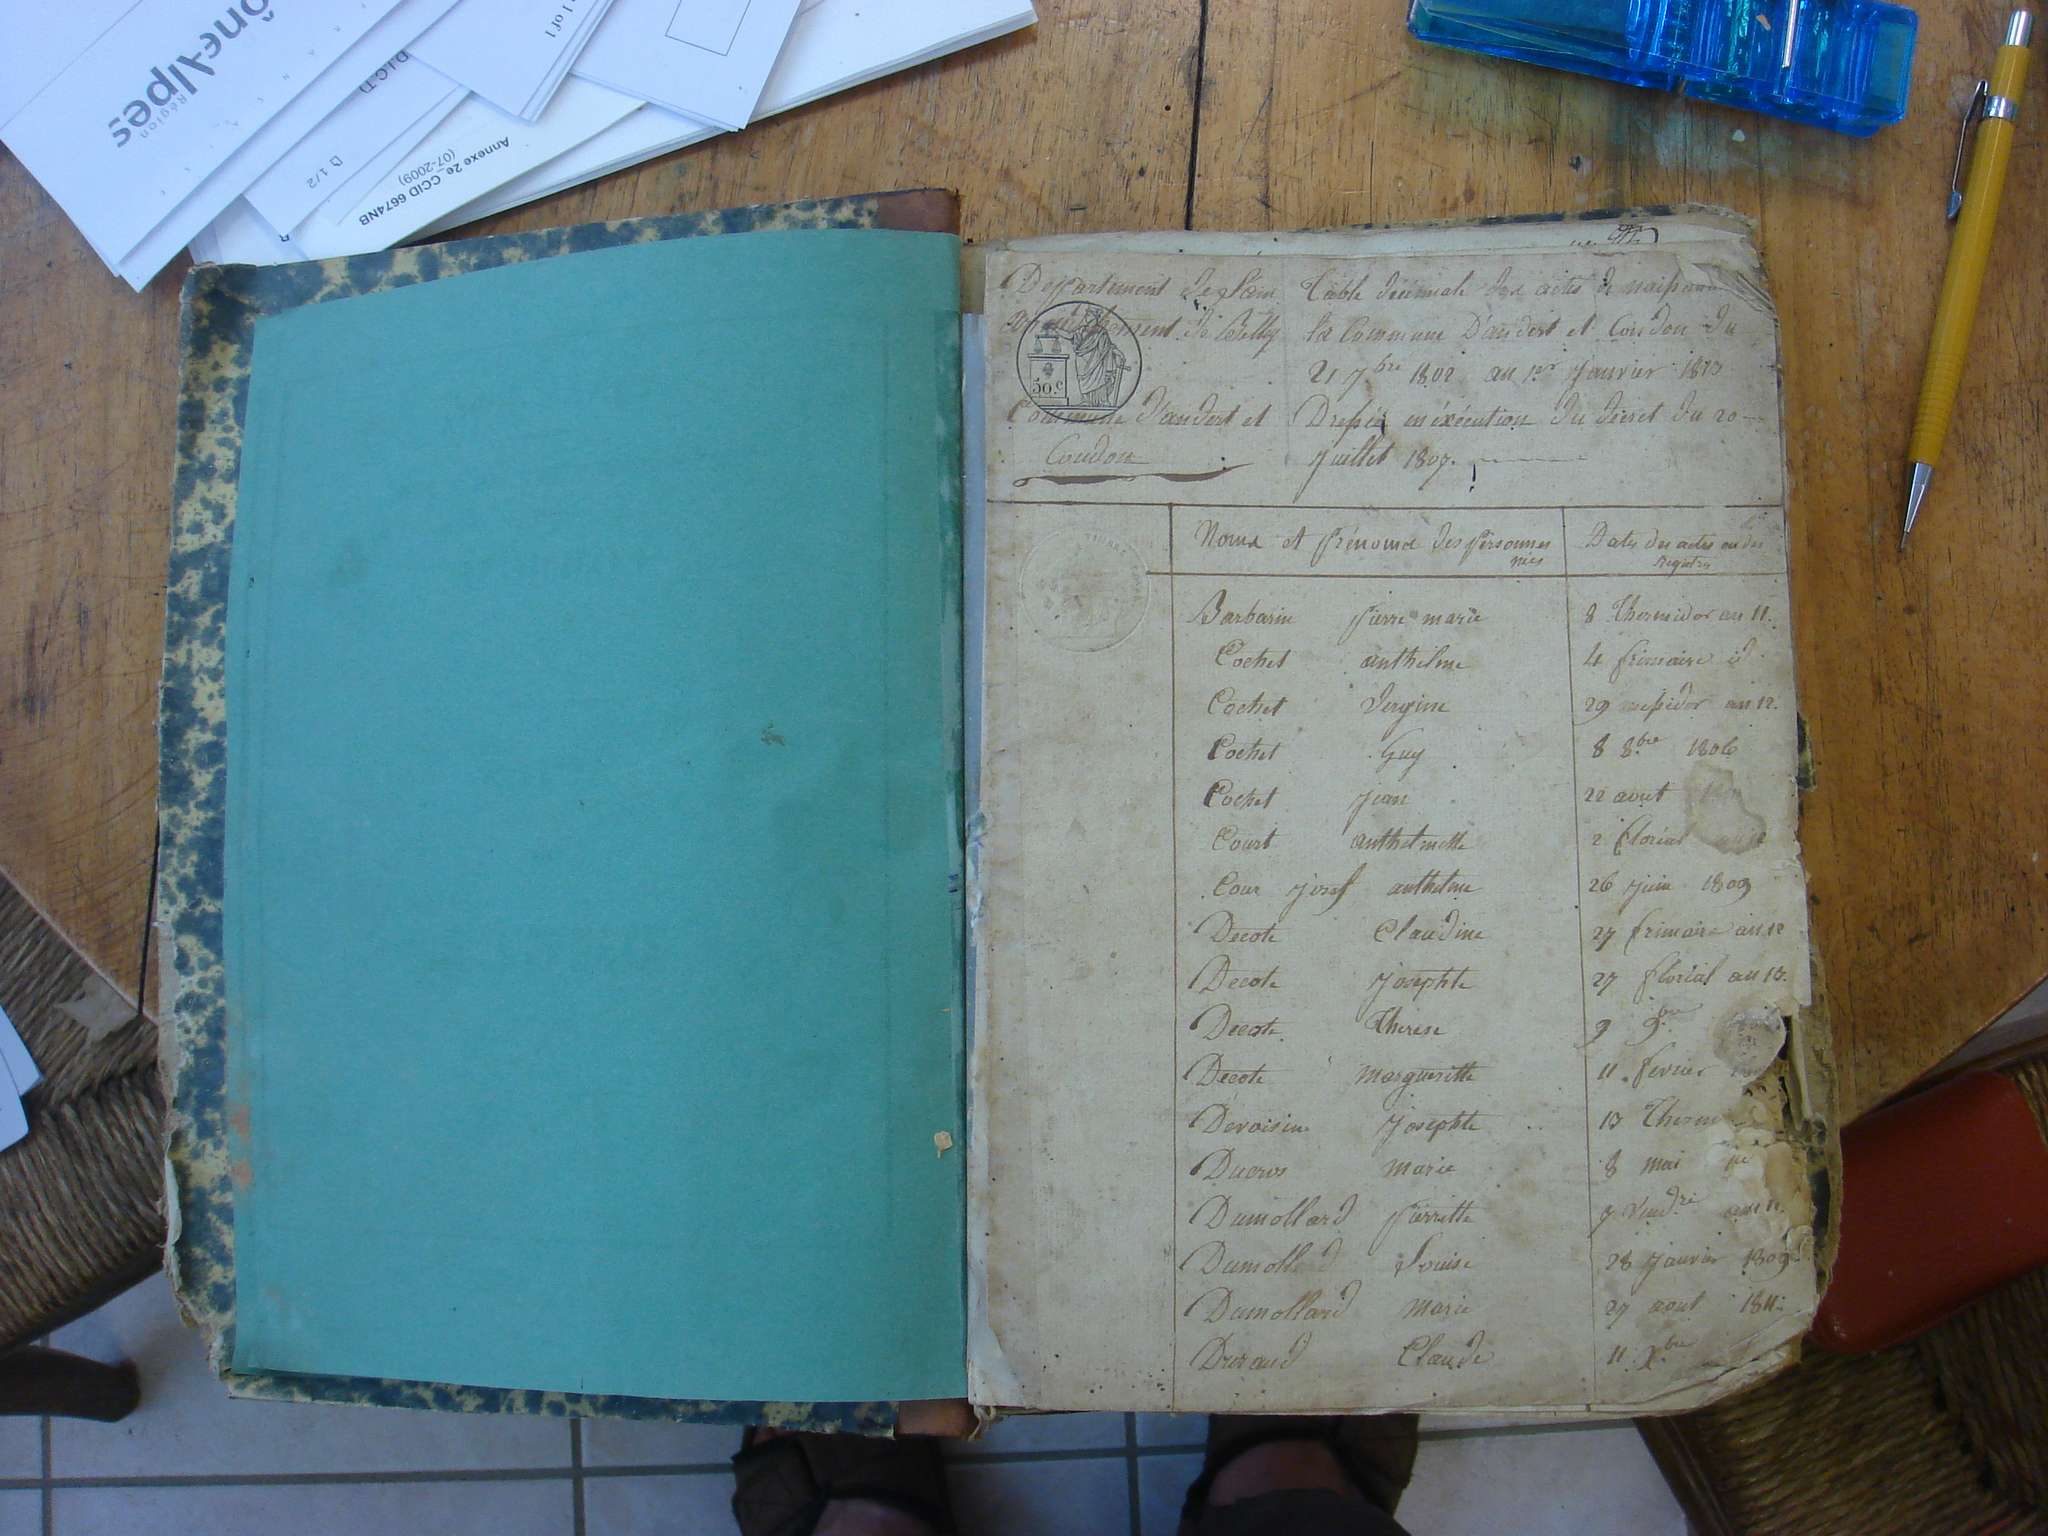 Rhône-Alpes
Région
1 of 1
D 1/2
Annexe 2e_CCID 6674NB
(07-2009)
Departement de l'ain
Table décennale des actes de naissance
Arrondissement de Belley
la Commune D'andert et Condon du
21 7bre 1802 au 1er Janvier 1813
50 c
Commune D'andert et
Dressée en éxécution du décret du 20
Condon
Juillet 1807.
Noms et Prénoms des Personnes
nées
Dates des actes ou des
registres
Barbarin Pierre marie 8 Thermidor an 11.
Cochet anthelme 4 frimaire id
Cochet Virgine 29 messidor an 12.
Cochet Guy 8 8bre 1806
Cochet Jean 22 aout
Court anthelmette 2 floréal an 12
Cour Josef anthelme 26 juin 1809
Decote Claudine 27 frimaire an 12
Decote Josephte 27 floréal an 13.
Decote Therese 9 9bre
Decote Margueritte 11 fevrier
Devoisin Josephte 13 Therm
Ducros Marie 8 mai
Dumollard Pierrette 9 Vendre an 12.
Dumollard Louise 28 Janvier 1809
Dumollard Marie 27 aout 1811
Durand Claude 11 Xbre